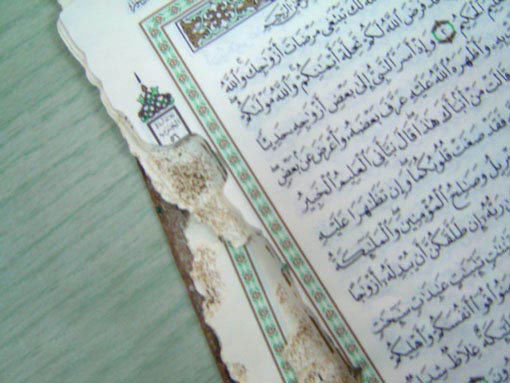 ٱللَّهُ لَكَ تَبْتَغِي مَرْضَاتَ أَزْوَٰجِكَ وَٱللَّهُ
فَرَضَ ٱللَّهُ لَكُمْ تَحِلَّةَ أَيْمَٰنِكُمْ وَٱللَّهُ مَوْلَىٰكُمْ
ٱلْحَكِيمُ وَإِذْ أَسَرَّ ٱلنَّبِيُّ إِلَىٰ بَعْضِ أَزْوَٰجِهِ حَدِيثًا
بِهِ وَأَظْهَرَهُ ٱللَّهُ عَلَيْهِ عَرَّفَ بَعْضَهُ وَأَعْرَضَ عَنْ بَعْضٍ
قَالَتْ مَنْ أَنۢبَأَكَ هَٰذَا قَالَ نَبَّأَنِيَ ٱلْعَلِيمُ ٱلْخَبِيرُ
فَقَدْ صَغَتْ قُلُوبُكُمَا وَإِن تَظَٰهَرَا عَلَيْهِ
وَصَٰلِحُ ٱلْمُؤْمِنِينَ وَٱلْمَلَٰٓئِكَةُ
رَبُّهُ إِن طَلَّقَكُنَّ أَن يُبْدِلَهُ أَزْوَٰجًا
تَٰٓئِبَٰتٍ عَٰبِدَٰتٍ سَٰٓئِحَٰتٍ
قُوٓا۟ أَنفُسَكُمْ وَأَهْلِيكُمْ
غِلَاظٌ شِدَادٌ